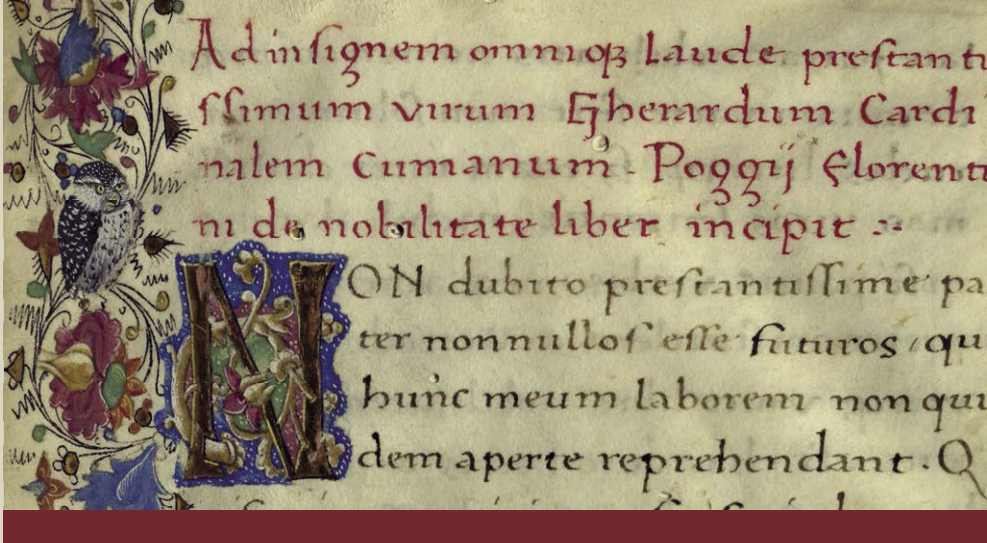 Ad insignem omniqꝫ laude prestanti
ssimum virum Gherardum Cardi
nalem Cumanum. Poggij florenti
ni de nobilitate liber incipit :-
NON dubito prestantissime pa
ter nonnullos esse futuros, qu
hunc meum laborem non qui
dem aperte reprehendant. Q